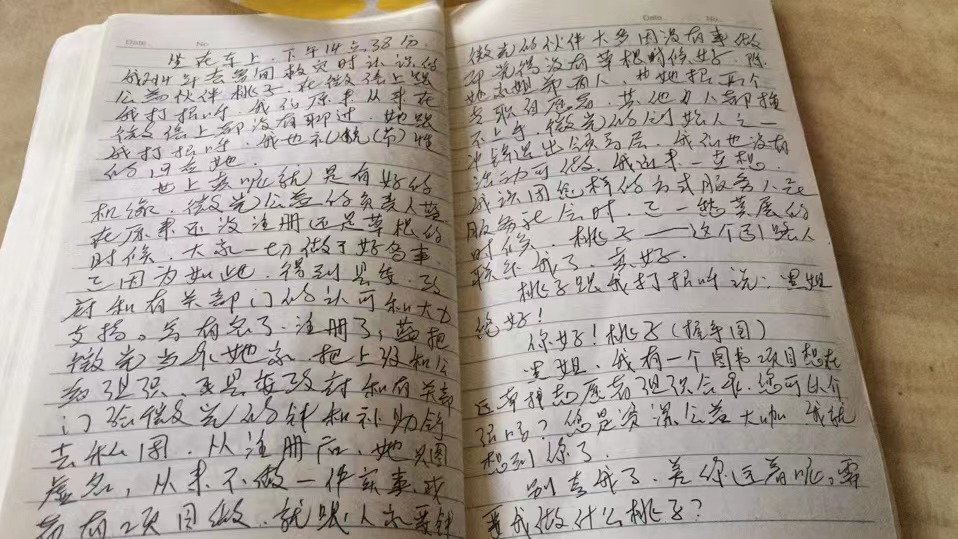 Date No
坐在车上,下午14点38分,
我2014年去 救灾时认识的
公益伙伴桃子,在微信上跟
我打招呼。我们原来从来在
微信上都没有聊过,她跟
我打招呼,我也礼貌(节)性
的回应她。
世上真呢就是有好的
机缘,微光公益的负责人蓝
在原来还没注册还是草根的
时候,大家一切做了好多事,
已因为如此,得到县委、政
府和有关部门的认可和大力
支持。名有名了,注册了,蓝把
微光当个她家,把上级和公
益组织,更是委政府和有关部
门给微光的钱和补助
去私用。从注册后,她只图
虚名,从来不做一件实事,或
者有项目做,就跟人家要钱
Date No
微光的伙伴大多因没有事做
都觉得没有草根时候好,除
她 姐 两人,也她招两个
专职做 ,其他的人都挂
不上号,微光的创始人之一
冲锋退出领导层,我们也没有
活动可做,我近来一直想
我该因怎样的方式服务人民
服务社会时,正一愁莫展的
时候,桃子——这个引路人
联系我了,真好。
桃子跟我打招呼说:里姐
您好!
你好!桃子(握手图)
里姐,我有一个图书项目想在
志愿者组织合作,您可以介
绍吗?您是资深公益大咖,我就
想到你了。
别夸我了,差你远着呢。需
要我做什么桃子?